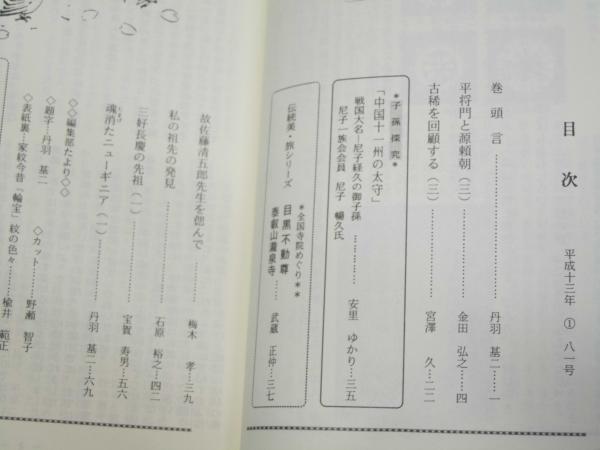 目次　平成十三年　①　八一号
巻頭言……………………丹羽　基二……一
平将門と源頼朝（三）……………金田　弘之……四
古稀を回顧する（三）……………宮澤　久…二二
＊子孫探究＊
「中国十一州の太守」
戦国大名―尼子経久の御子孫
尼子一族会会員　尼子　暢久氏…………安里　ゆかり…三五
伝統美・旅シリーズ
＊全国寺院めぐり＊＊
目黒不動尊
泰叡山瀧泉寺……武蔵　正仲…三七
故佐藤清五郎先生を偲んで……………梅木　孝…三九
私の祖先の発見……………石原　裕之…四二
三好長慶の先祖（一）……………宝賀　寿男…五六
魂消たニューギニア（一）……………丹羽　基二…六九
たまげ
◇◇編集部たより◇◇
◇題字…丹羽　基二　◇カット…野瀬　智子
◇表紙裏…家紋今昔「輪宝」紋の色々……楡井　範正